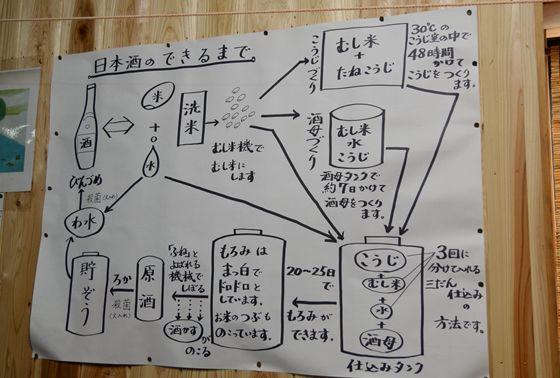 日本酒のできるまで
酒
米
+
水
洗
米
むし米機で
むし米に
します
こうじづくり
むし米
+
たねこうじ
30℃の
こうじ室の中で
48時間
かけて
こうじをつくり
ます。
酒母づくり
むし米
水
こうじ
酒母タンクで
約7日かけて
酒母をつくり
ます。
こうじ
+
むし米
+
水
+
酒母
仕込みタンク
3回に
分けていれる
三だん
仕込みの
方法です。
20〜25日
で
もろみが
できます。
もろみは
まっ白で
ドロドロと
しています。
お米のつぶも
のこっています。
「ふね」と
よばれる
機械で
しぼる
酒かすが
のこる
原
酒
ろか
殺菌
(火入れ)
貯ぞう
わ水
殺菌(火入れ)
びんづめ